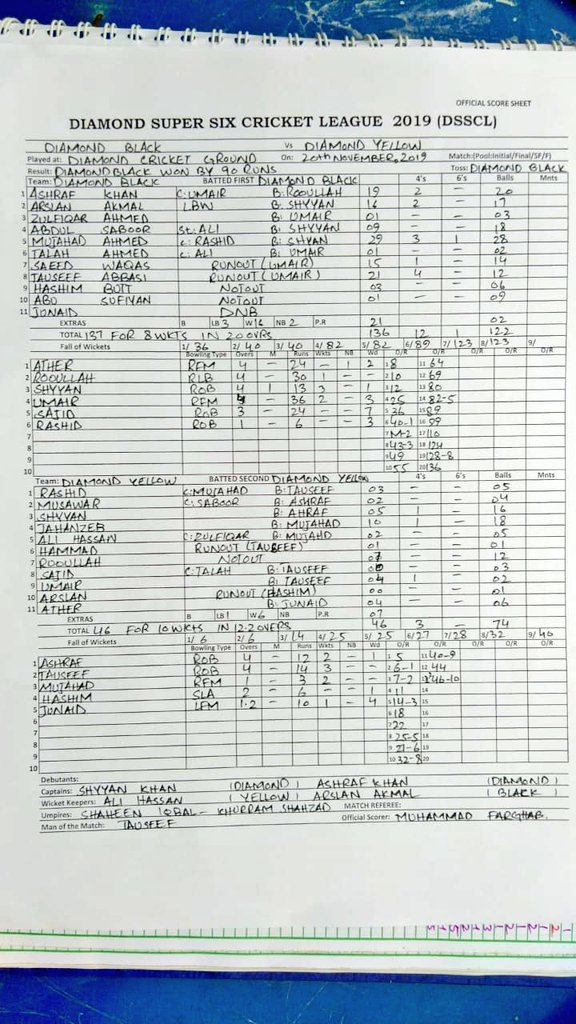 OFFICIAL SCORE SHEET
DIAMOND SUPER SIX CRICKET LEAGUE 2019 (DSSCL)
DIAMOND BLACK Vs DIAMOND YELLOW
Played at: DIAMOND CRICKET GROUND On: 20TH NOVEMBER, 2019 Match:(Pool:Initial/Final/SF/F)
Result: DIAMOND BLACK WON BY 90 RUNS Toss: DIAMOND BLACK
Team: DIAMOND BLACK BATTED FIRST DIAMOND BLACK 4's 6's Balls Mnts
1 ASHRAF KHAN C: UMAIR B: ROOULLAH 19 2 - 20
2 ARSLAN AKMAL LBW B: SHYYAN 16 2 - 17
3 ZULFIQAR AHMED B: UMAIR 01 - - 03
4 ABDUL SABOOR St: ALI B: SHYYAN 09 - - 18
5 MUJAHAD AHMED C: RASHID B: SHYAN 29 3 1 28
6 TALAH AHMED C: ALI B: UMAIR 01 - - 02
7 SAEED WAQAS RUNOUT (UMAIR) 15 1 - 14
8 TAUSEEF ABBASI RUNOUT (UMAIR) 21 4 - 12
9 HASHIM BUTT NOTOUT 03 - - 06
10 ABU SUFIYAN NOTOUT 01 - - 09
11 JUNAID DNB
EXTRAS B LB 3 W 16 NB 2 P.R 21 02
TOTAL 137 FOR 8 WKTS IN 20 OVRS 136 12 1 122
Fall of Wickets 1/ 36 2/ 40 3/ 40 4/ 82 5/ 82 6/ 89 7/ 123 8/ 123 9/
Bowling Type Overs M Runs Wkts NB Wd O/R O/R O/R O/R O/R
1 ATHER RFM 4 - 24 - 1 2 1 8 11 64
2 ROOULLAH RLB 4 - 30 1 - - 2 10 12 69
3 SHYYAN ROB 4 1 13 3 - 1 3 12 13 80
4 UMAIR RFM 4 - 36 2 - 3 4 25 14 82-5
5 SAJID ROB 3 - 24 - - 7 5 36 15 89
6 RASHID ROB 1 - 6 - - 3 6 40-1 16 99
7 7 M-2 17 110
8 8 43-3 18 124
9 9 49 19 128-8
10 10 55 20 136
Team: DIAMOND YELLOW BATTED SECOND DIAMOND YELLOW 4's 6's Balls Mnts
1 RASHID C: MUJAHAD B: TAUSEEF 03 - - 05
2 MUSAWAR C: SABOOR B: ASHRAF 02 - - 04
3 SHYYAN B: AHRAF 05 1 - 16
4 JAHANZEB B: MUJAHAD 10 1 - 18
5 ALI HASSAN C: ZULFIQAR B: MUJAHD 02 - - 05
6 HAMMAD RUNOUT (TAUSEEF) 01 - - 01
7 ROOULLAH NOTOUT 07 - - 12
8 SAJID C: TALAH B: TAUSEEF 00 - - 03
9 UMAIR B: TAUSEEF 04 1 - 02
10 ARSLAN RUNOUT (HASHIM) 00 - - 01
11 ATHER B: JUNAID 04 - - 06
EXTRAS B LB 1 W 6 NB P.R 07
TOTAL 46 FOR 10 WKTS IN 12.2 OVERS 46 3 - 74
Fall of Wickets 1/ 6 2/ 6 3/ 14 4/ 25 5/ 25 6/ 27 7/ 28 8/ 32 9/ 40
Bowling Type Overs M Runs Wkts NB Wd O/R O/R O/R O/R O/R
1 ASHRAF ROB 4 - 12 2 - 1 1 5 11 40-9
2 TAUSEEF ROB 4 - 14 3 - - 2 6-1 12 44
3 MUJAHAD RFM 1 - 3 2 - - 3 7-2 13 46-10
4 HASHIM SLA 2 - 6 - - 1 4 11 14
5 JUNAID LFM 1.2 - 10 1 - 4 5 14-3 15
6 6 18 16
7 7 22 17
8 8 25-5 18
9 9 27-6 19
10 10 32-8 20
Debutants:
Captains: SHYYAN KHAN (DIAMOND) ASHRAF KHAN (DIAMOND)
Wicket Keepers: ALI HASSAN (YELLOW) ARSLAN AKMAL (BLACK)
Umpires: SHAHEEN IQBAL - KHURRAM SHAHZAD MATCH REFEREE:
Man of the Match: TAUSEEF Official Scorer: MUHAMMAD FARGHAB.